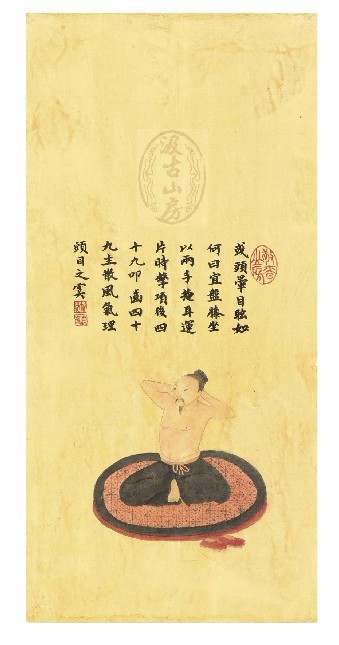 汲古山房
或頭暈目眩如
何曰宜盤膝坐
以兩手掩耳運
片時擊項後四
十九叩齒四十
九主散風氣理
頭目之